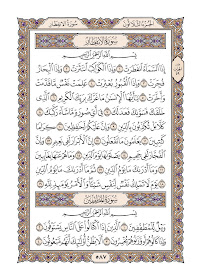 سُورَةُ الانفِطَارِ
بِسْمِ اللَّهِ الرَّحْمَٰنِ الرَّحِيمِ
إِذَا السَّمَاءُ انفَطَرَتْ ١ وَإِذَا الْكَوَاكِبُ انتَثَرَتْ ٢ وَإِذَا الْبِحَارُ
فُجِّرَتْ ٣ وَإِذَا الْقُبُورُ بُعْثِرَتْ ٤ عَلِمَتْ نَفْسٌ مَّا قَدَّمَتْ
وَأَخَّرَتْ ٥ يَا أَيُّهَا الْإِنسَانُ مَا غَرَّكَ بِرَبِّكَ الْكَرِيمِ ٦ الَّذِي
خَلَقَكَ فَسَوَّاكَ فَعَدَلَكَ ٧ فِي أَيِّ صُورَةٍ مَّا شَاءَ رَكَّبَكَ ٨
كَلَّا بَلْ تُكَذِّبُونَ بِالدِّينِ ٩ وَإِنَّ عَلَيْكُمْ لَحَافِظِينَ ١٠ كِرَامًا
كَاتِبِينَ ١١ يَعْلَمُونَ مَا تَفْعَلُونَ ١٢ إِنَّ الْأَبْرَارَ لَفِي نَعِيمٍ ١٣ وَإِنَّ
الْفُجَّارَ لَفِي جَحِيمٍ ١٤ يَصْلَوْنَهَا يَوْمَ الدِّينِ ١٥ وَمَا هُمْ عَنْهَا بِغَائِبِينَ
١٦ وَمَا أَدْرَاكَ مَا يَوْمُ الدِّينِ ١٧ ثُمَّ مَا أَدْرَاكَ مَا يَوْمُ الدِّينِ
١٨ يَوْمَ لَا تَمْلِكُ نَفْسٌ لِّنَفْسٍ شَيْئًا وَالْأَمْرُ يَوْمَئِذٍ لِّلَّهِ ١٩
سُورَةُ المُطَفِّفِينَ
بِسْمِ اللَّهِ الرَّحْمَٰنِ الرَّحِيمِ
وَيْلٌ لِّلْمُطَفِّفِينَ ١ الَّذِينَ إِذَا اكْتَالُوا عَلَى النَّاسِ يَسْتَوْفُونَ ٢
وَإِذَا كَالُوهُمْ أَو وَّزَنُوهُمْ يُخْسِرُونَ ٣ أَلَا يَظُنُّ أُولَٰئِكَ أَنَّهُم مَّبْعُوثُونَ ٤
٥٨٧